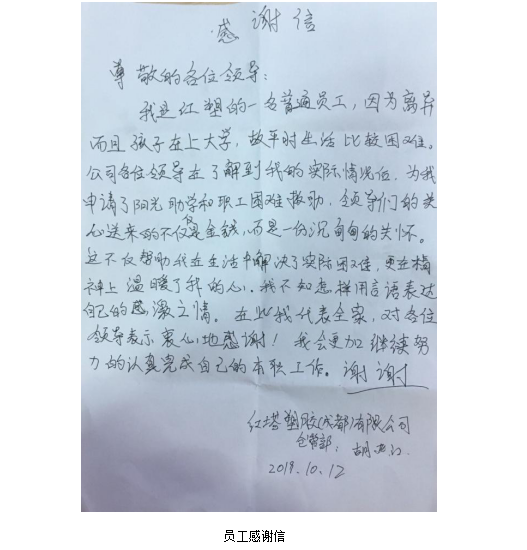 感谢信
尊敬的各位领导：
我是红塑的一名普通员工，因为离异
而且孩子在上大学，故平时生活比较困难。
公司各位领导在了解到我的实际情况后，为我
申请了阳光助学和职工困难救助，领导们的关
心送来的不仅仅是金钱，而是一份沉甸甸的关怀。
这不仅帮助我在生活中解决了实际困难，更在精
神上温暖了我的心，我不知怎样用言语表达
自己的感激之情。在此我代表全家，对各位
领导表示衷心地感谢！我会更加继续努
力的认真完成自己的本职工作。谢谢
红塔塑胶(成都)有限公司
仓管部：胡
2019.10.12
员工感谢信